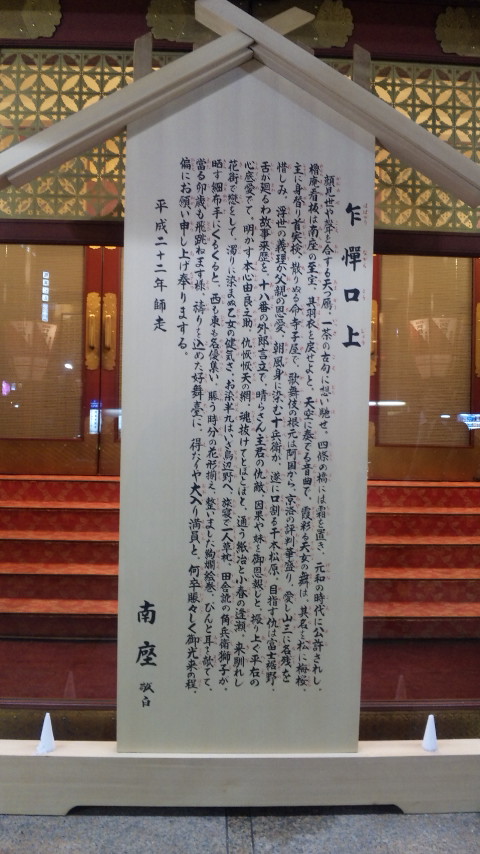 乍憚口上
顔見世や聲と合する天の扉、一茶の古句に想い馳せ、四條の橋には霜を置き、元和の時代に公許されし、
櫓庵看板は南座の至宝、其羽衣を戻せよと、天空に奏でる音曲で、霞彩る天女の舞は、其名も松に梅桜、
主に身替り首実検、散りぬる命寺子屋で、歌舞伎の根元は阿国から、京洛の評判華盛り、愛し山三に名残を
惜しみ、浮世の義理が父親の恩愛、朝風身に染む十兵衛が、遂に口割る千本松原、目指す仇は富士裾野、
舌が廻るわ故事来歴を、十八番の外郎言立で、晴らさん主君の仇敵、因果や妹と御恩報じと、振り上ぐ平右の
心底愛でて、明かす本心由良之助、仇恢恢天の網、魂抜けてとぼとぼと、通う紙治と小春の逢瀬、来馴れし
花街で戀をして、濁りに染まぬ乙女の健気さ、お染半九はいざ鳥辺野へ、旅寝で一人草枕、田舎訛の角兵衛獅子が、
晒す細布手にくるくると、西も東も名優集い、賑う時分の花形揃え、整いました絢爛絵巻、ぴんと耳を欹てて、
當る卯歳も飛跳ねます様、祷りを込めた好舞臺に、得たりや大入り満員と、何卒賑々しく御光来の程、
偏にお願い申し上げ奉りまする。
平成二十二年師走
南座 敬白